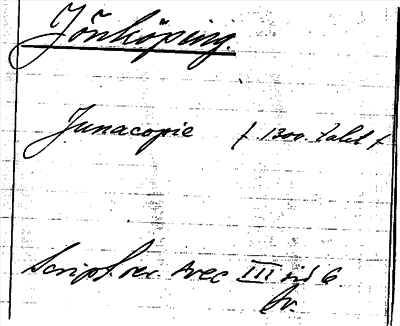 Jönköping.
Junacopie (1300. talet)
Script. rer. svec III sid 6.